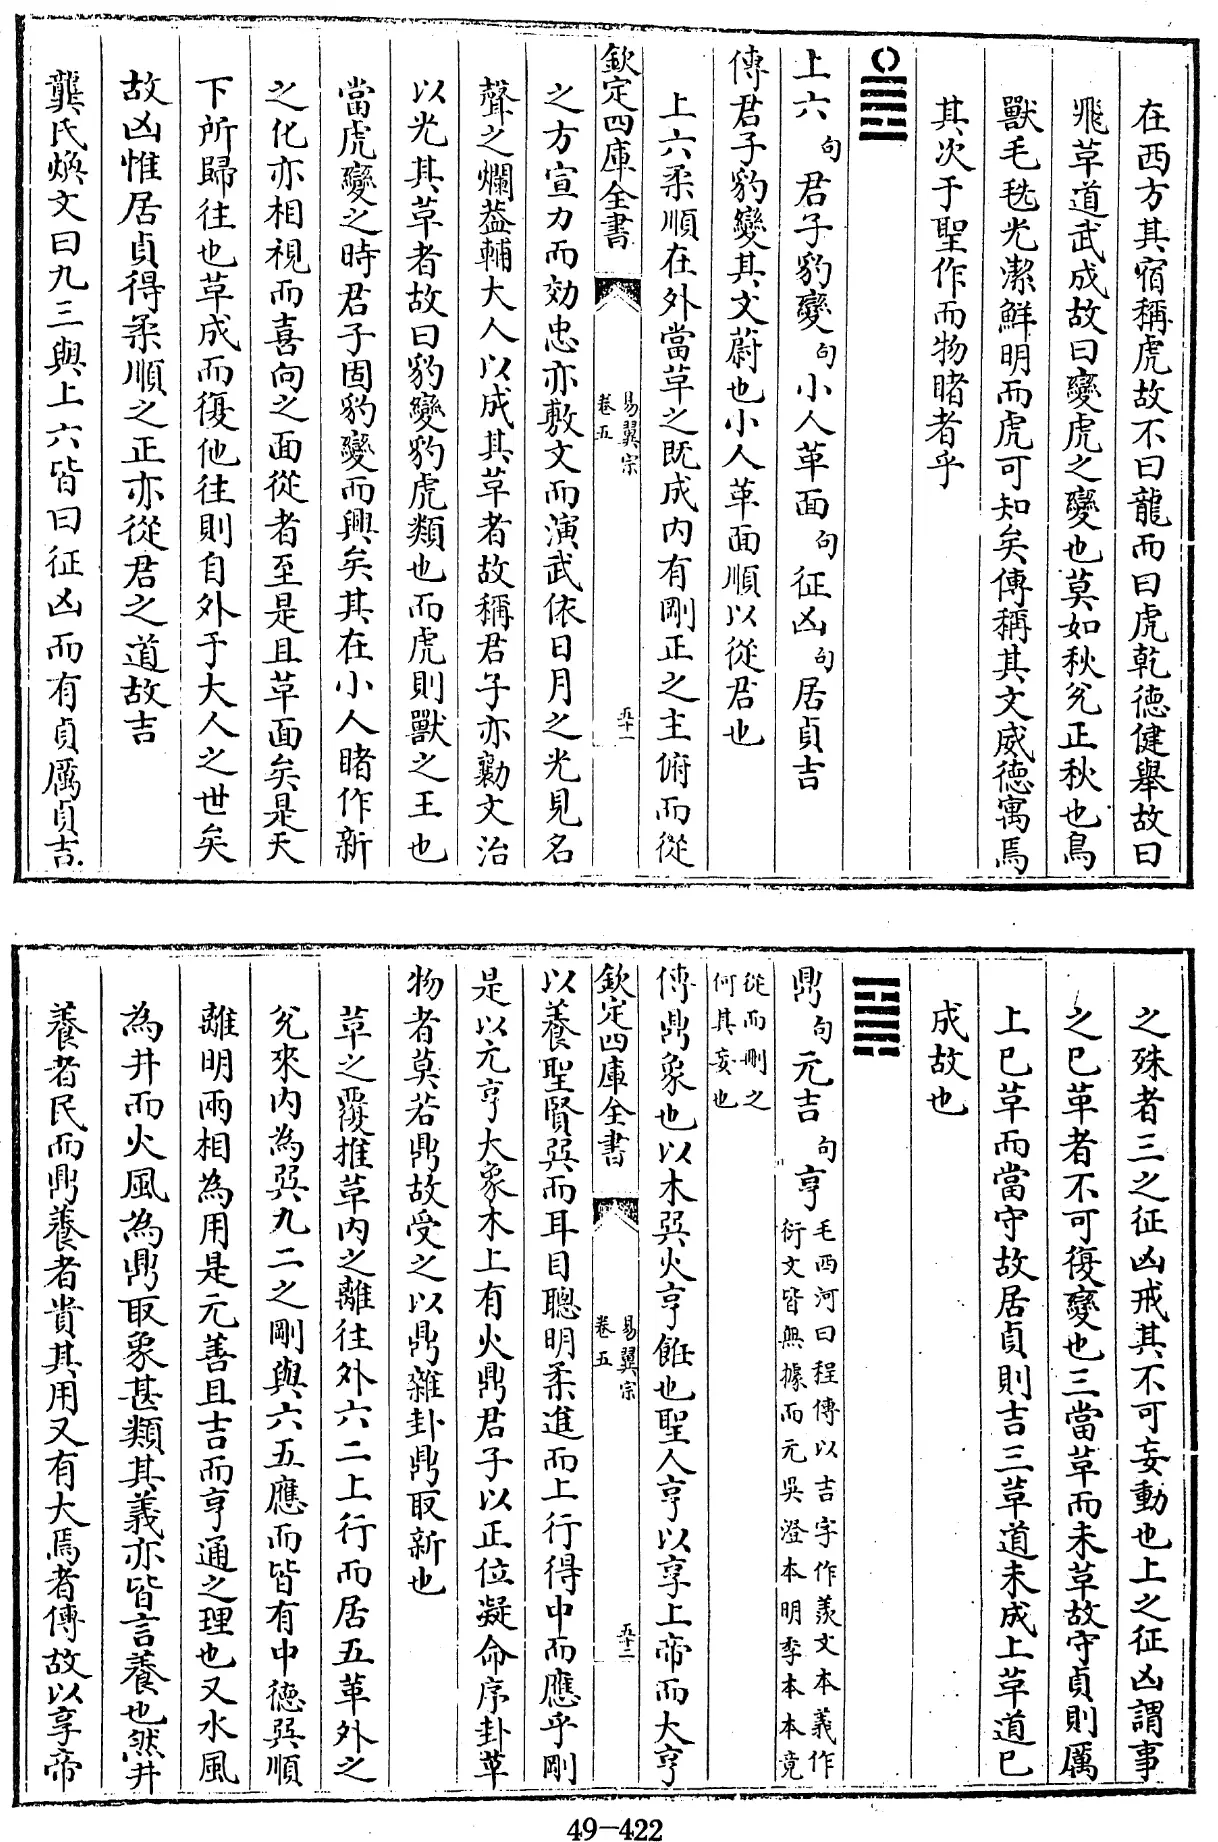 在西方其宿稱虎故不曰龍而曰虎乾德健舉故曰
飛革道武成故曰變虎之變也莫如秋兊正秋也鳥
獸毛毨光潔鮮明而虎可知矣傳稱其文威德寓焉
其次于聖作而物睹者乎
上六句君子豹變句小人革面句征凶句居貞吉
傳君子豹變其文蔚也小人革面順以從君也
上六柔順在外當革之既成内有剛正之主俯而從
欽定四庫全書
易翼宗
卷五
五十一
之方宣力而効忠亦敷文而演武依日月之光見名
聲之爛葢輔大人以成其革者故稱君子亦勷文治
以光其革者故曰豹變豹虎類也而虎則獸之王也
當虎變之時君子固豹變而興矣其在小人睹作新
之化亦相視而喜向之面從者至是且革面矣是天
下所歸往也革成而復他往則自外于大人之世矣
故凶惟居貞得柔順之正亦從君之道故吉
龔氏煥文曰九三與上六皆曰征凶而有貞厲貞吉
之殊者三之征凶戒其不可妄動也上之征凶謂事
之已革者不可復變也三當革而未革故守貞則厲
上已革而當守故居貞則吉三革道未成上革道已
成故也
鼎句元吉句亨毛西河曰程傳以吉字作羨文本義作
衍文皆無據而元吳澄本明季本本竟
從而刪之
何其妄也
傳鼎象也以木巽火亨飪也聖人亨以享上帝而大亨
欽定四庫全書
易翼宗
卷五
五十二
以養聖賢巽而耳目聰明柔進而上行得中而應乎剛
是以元亨大象木上有火鼎君子以正位凝命序卦革
物者莫若鼎故受之以鼎雜卦鼎取新也
革之覆推革内之離往外六二上行而居五革外之
兊來内為巽九二之剛與六五應而皆有中德巽順
離明兩相為用是元善且吉而亨通之理也又水風
為井而火風為鼎取象甚類其義亦皆言養也然井
養者民而鼎養者貴其用又有大焉者傳故以享帝
49-422